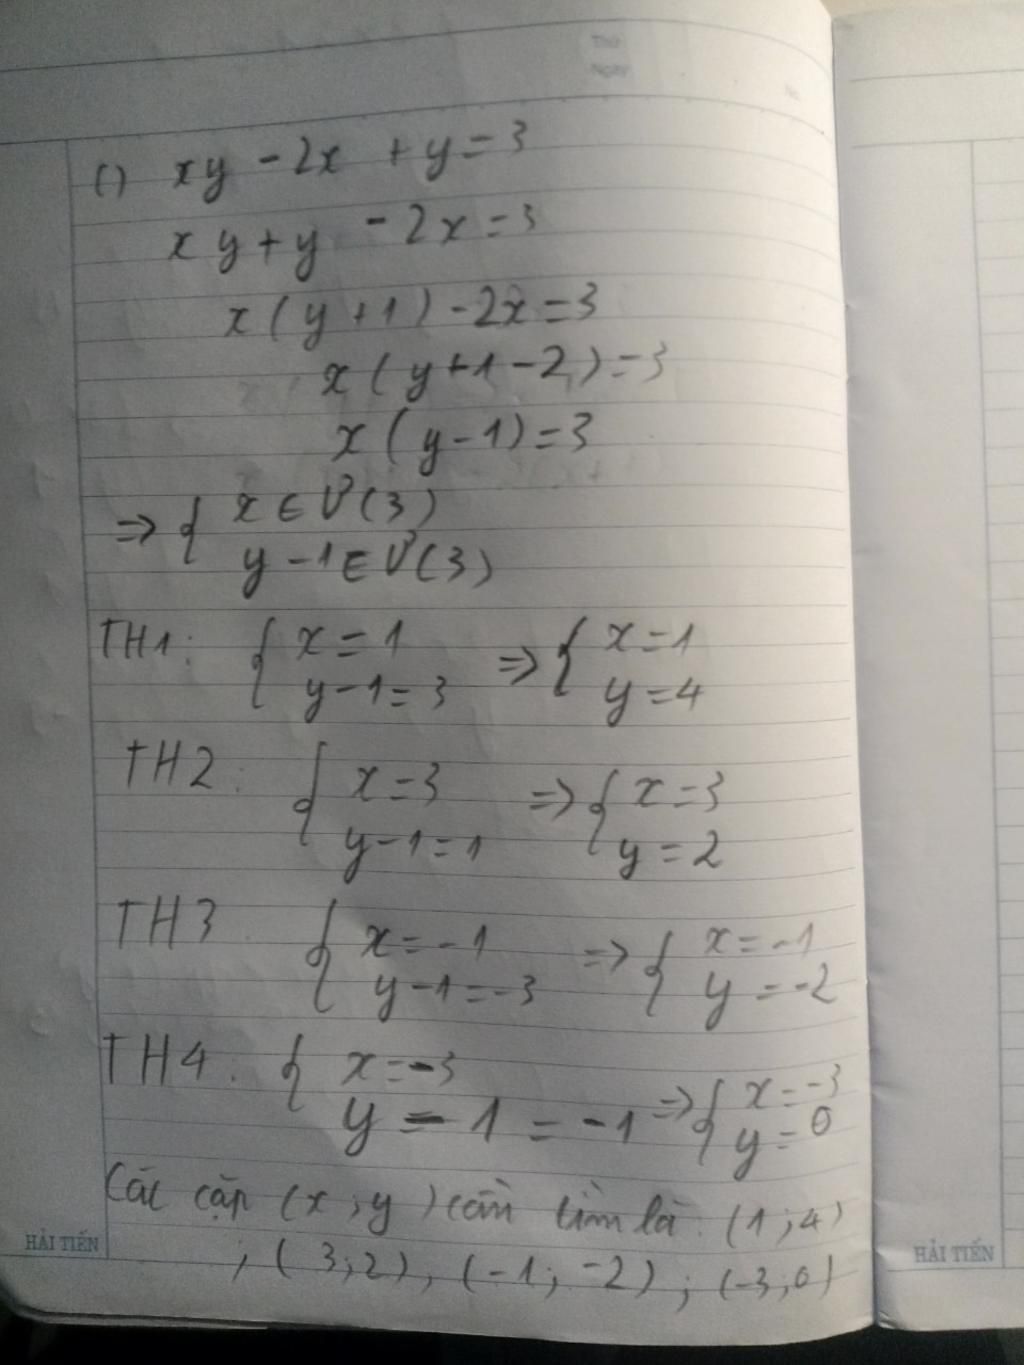 Thứ
Ngày
No.
c) xy - 2x + y = 3
xy + y - 2x = 3
x(y+1) - 2x = 3
x(y+1-2) = 3
x(y-1) = 3
⇒ { x ∈ Ư(3)
y - 1 ∈ Ư(3)
TH1: { x = 1 ⇒ { x = 1
y - 1 = 3 y = 4
TH2: { x = 3 ⇒ { x = 3
y - 1 = 1 y = 2
TH3 { x = -1 ⇒ { x = -1
y - 1 = -3 y = -2
TH4. { x = -3 ⇒ { x = -3
y - 1 = -1 y = 0
Các cặp (x;y) cần tìm là: (1;4)
; (3;2), (-1; -2); (-3;0)
HẢI TIẾN
HẢI TIẾN